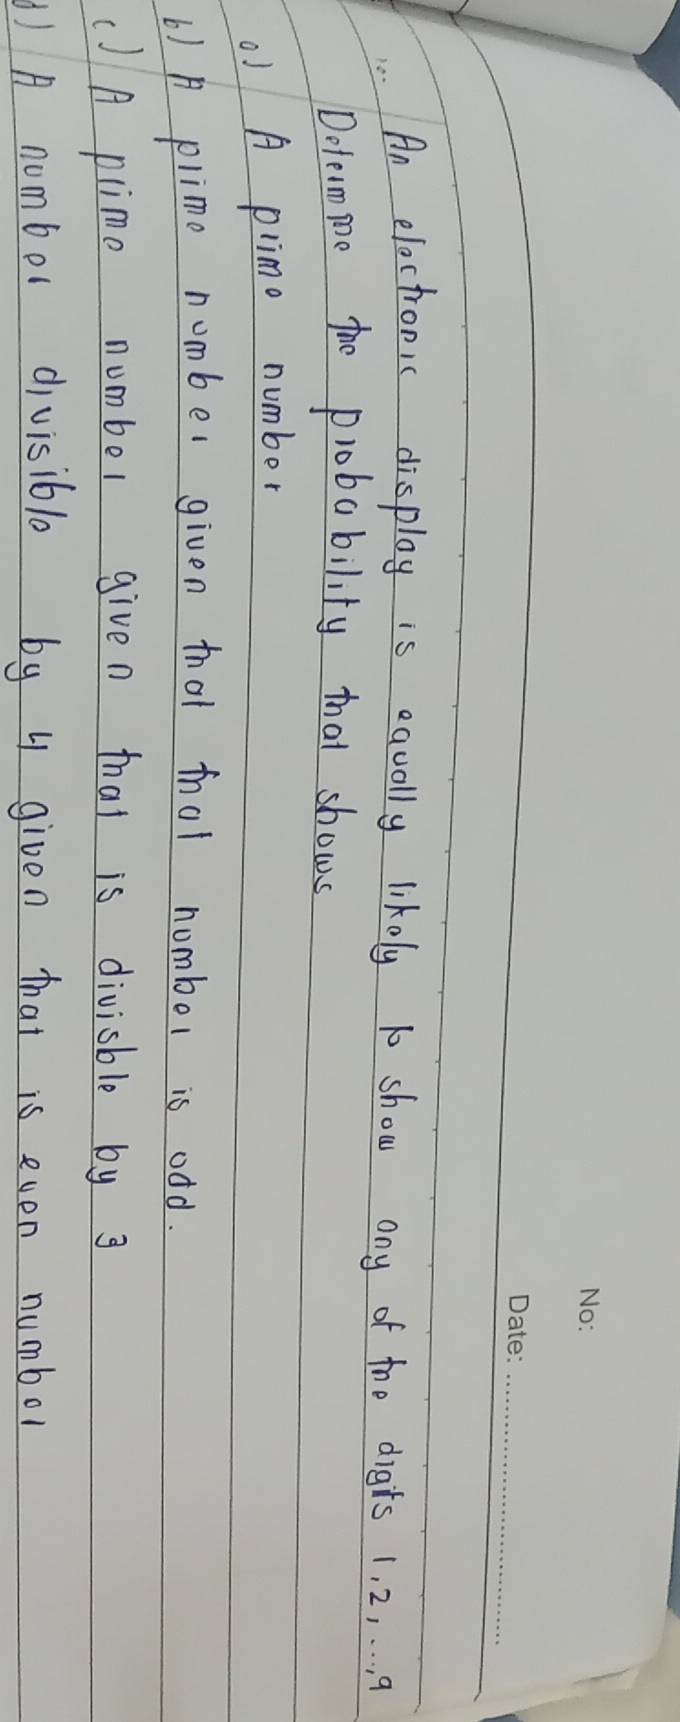 No:
Date: ................................
An electronic display is equally likely to show any of the digits 1,2,...,9
Determine the probability that shows
a) A prime number
b) A prime number given that that number is odd.
c) A prime number given that is divisble by 3
d) A number divisible by 4 given that is even number